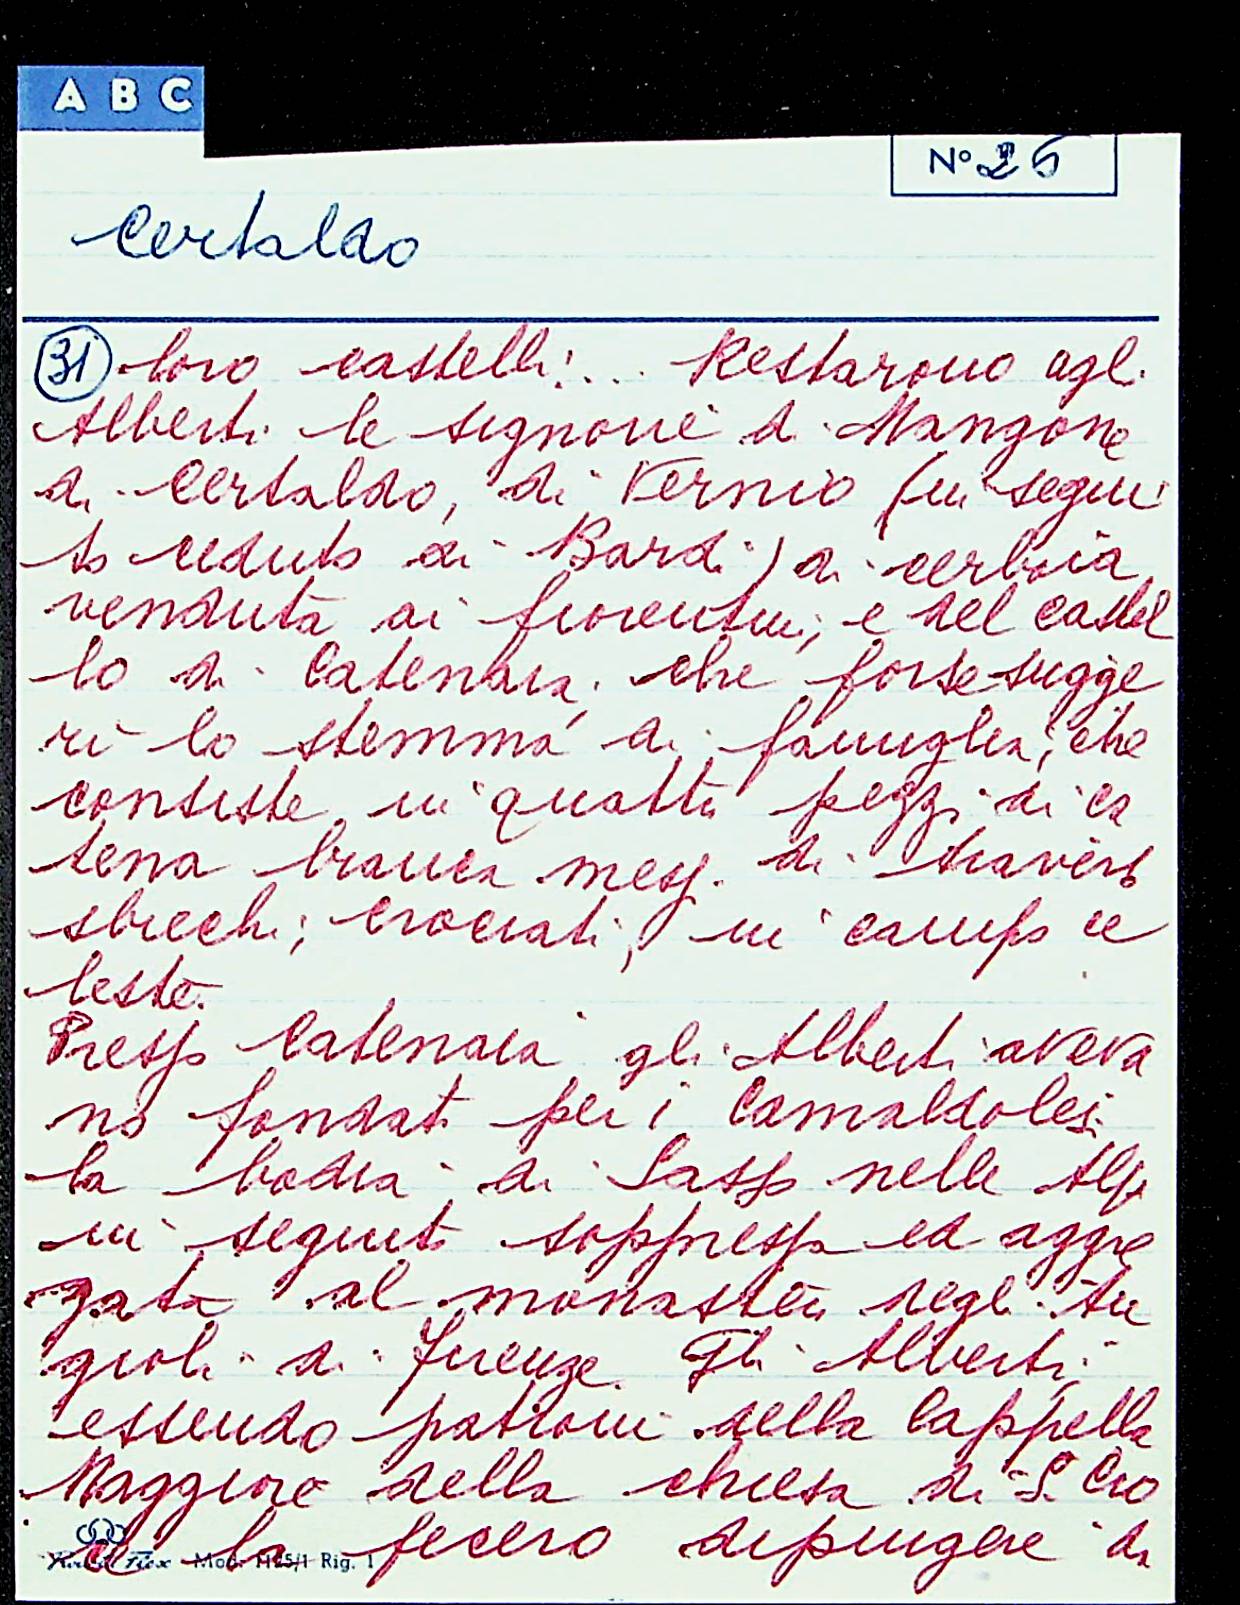 A B C
N° 26
Certaldo
31 loro castelli!... Restarono agli
Alberti le signorie di Mangona
di Certaldo, di Vernio (in segui
to ceduto ai Bardi) di Cerbaia
venduta ai fiorentini, e del castel
lo di Catenaia, che forse sugge
rì lo stemma di famiglia, che
consiste in quattro pezzi di ca
tena bianca messi di traverso
sbiechi, crociati, in campo ce
leste.
Presso Catenaia gli Alberti aveva
no fondato per i Camaldolesi
la badia di Sasso nelle Alpi
in seguito soppressa ed aggre
gata al monastero degli An
gioli di Firenze. Gli Alberti,
essendo patroni della Cappella
Maggiore della chiesa di S. Cro
ce la fecero dipingere da
Mod. Rig. 1